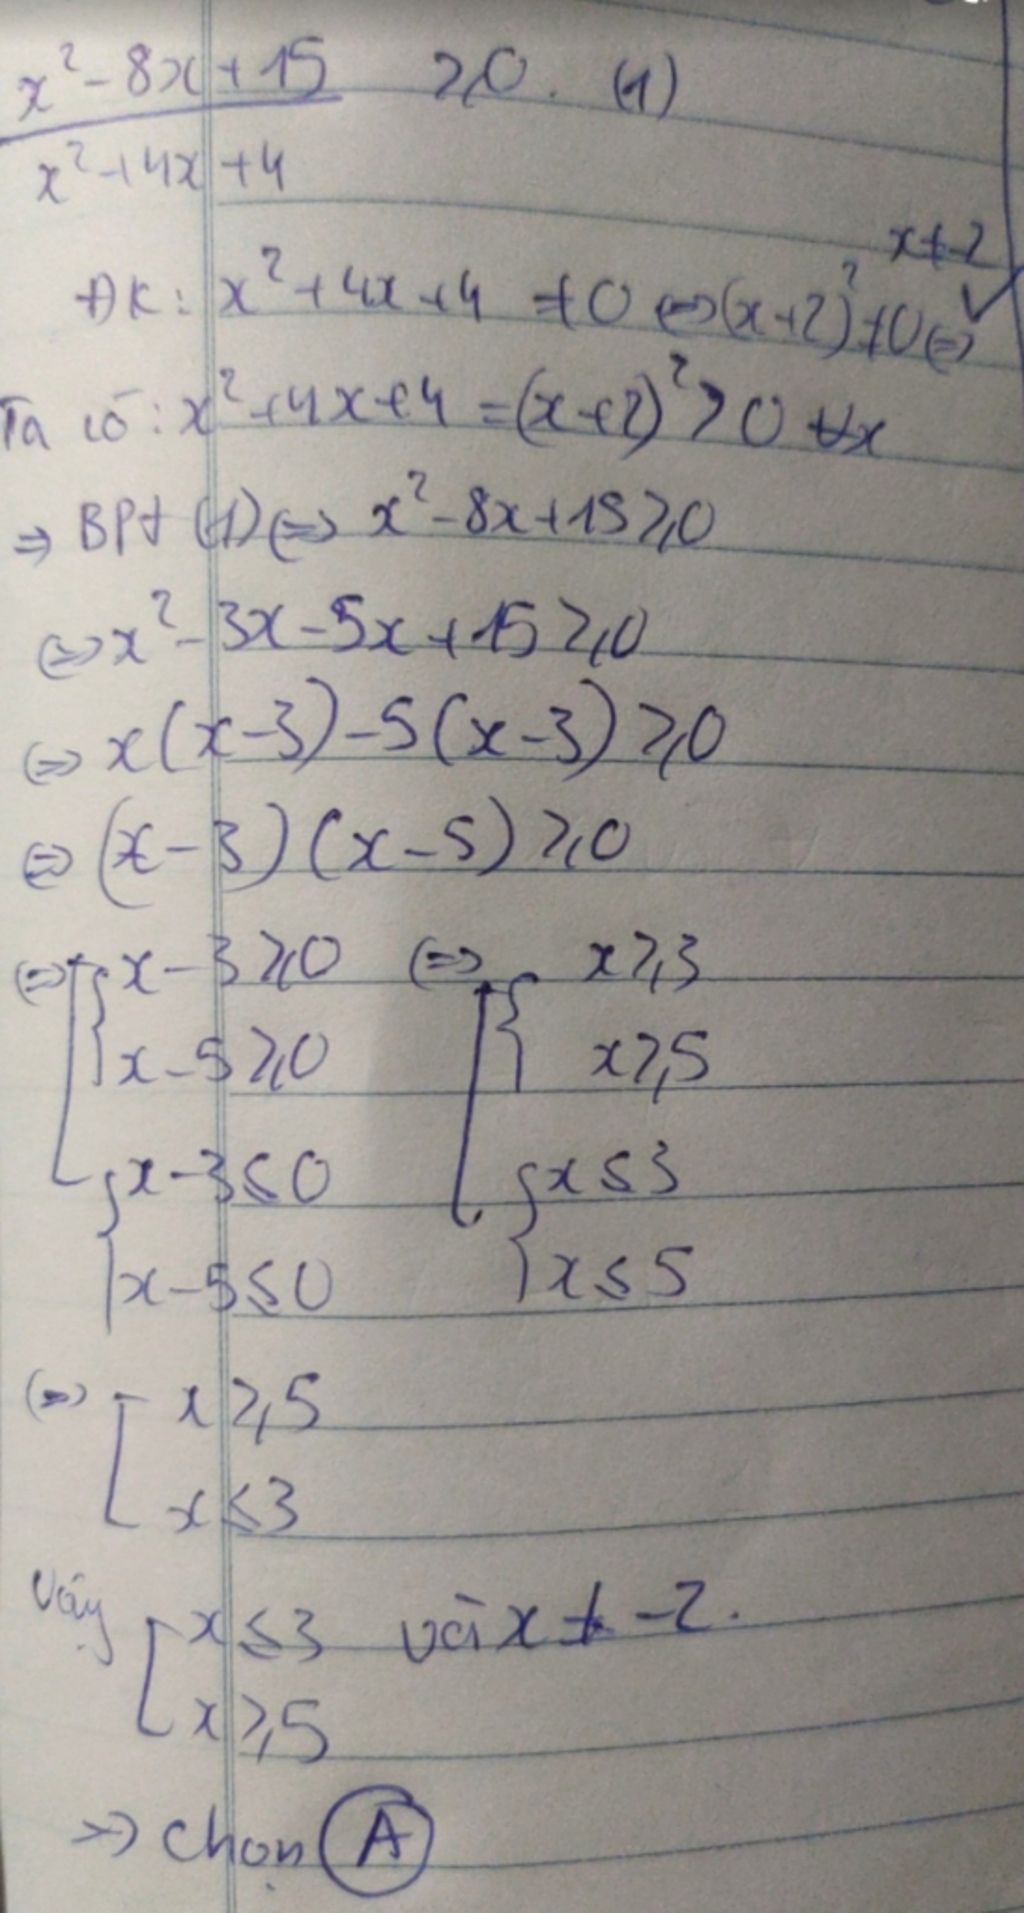 x² - 8x + 15 / x² + 4x + 4 ≥ 0. (1)
ĐK: x² + 4x + 4 ≠ 0 ⇔ (x+2)² ≠ 0 ⇔ x ≠ -2
Ta có: x² + 4x + 4 = (x+2)² > 0 ∀x
⇒ BPt (1) ⇔ x² - 8x + 15 ≥ 0
⇔ x² - 3x - 5x + 15 ≥ 0
⇔ x(x-3) - 5(x-3) ≥ 0
⇔ (x-3)(x-5) ≥ 0
⇔ [ { x - 3 ≥ 0 ⇔ [ { x ≥ 3
x - 5 ≥ 0 x ≥ 5
{ x - 3 ≤ 0 { x ≤ 3
x - 5 ≤ 0 x ≤ 5
⇔ [ x ≥ 5
x ≤ 3
Vậy [ x ≤ 3 và x ≠ -2.
x ≥ 5
→ Chọn A